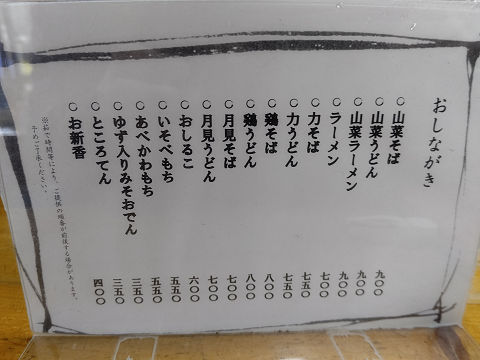 おしながき
○ 山菜そば 九〇〇
○ 山菜うどん 九〇〇
○ 山菜ラーメン 九〇〇
○ ラーメン 七〇〇
○ 力そば 七五〇
○ 力うどん 七五〇
○ 鶏そば 八〇〇
○ 鶏うどん 八〇〇
○ 月見そば 七〇〇
○ 月見うどん 七〇〇
○ おしるこ 六〇〇
○ いそべもち 五五〇
○ あべかわもち 五五〇
○ ゆず入りみそおでん 三五〇
○ ところてん 三五〇
○ お新香 四〇〇
※茹で時間等により、ご提供の順番が前後する場合があります。
予めご了承ください。